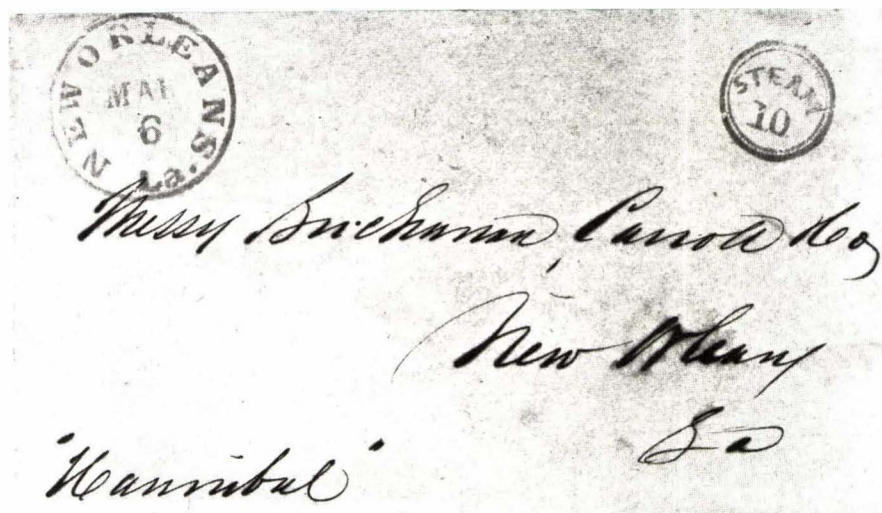 NEW ORLEANS • La
MAR
6
STEAM
10
Messrs Buchanan, Carroll & Co
New Orleans
La
"Hannibal"